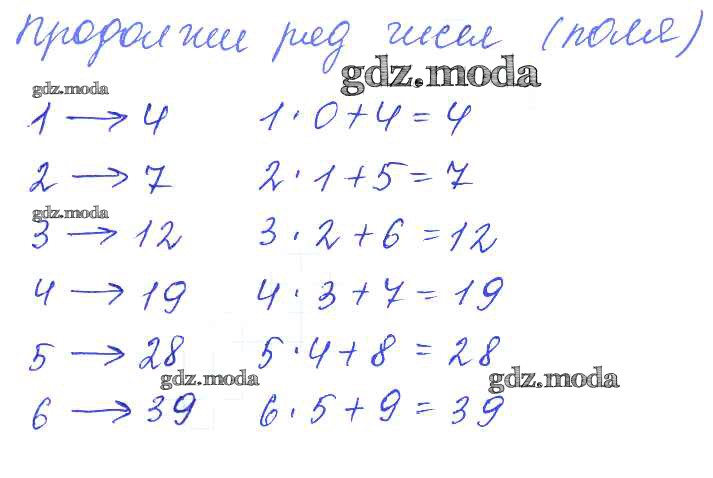 Продолжи ряд чисел (поля)
gdz.moda
gdz.moda
1 → 4 1·0+4=4
2 → 7 2·1+5=7
gdz.moda
3 → 12 3·2+6=12
4 → 19 4·3+7=19
5 → 28 5·4+8=28
gdz.moda
gdz.moda
6 → 39 6·5+9=39